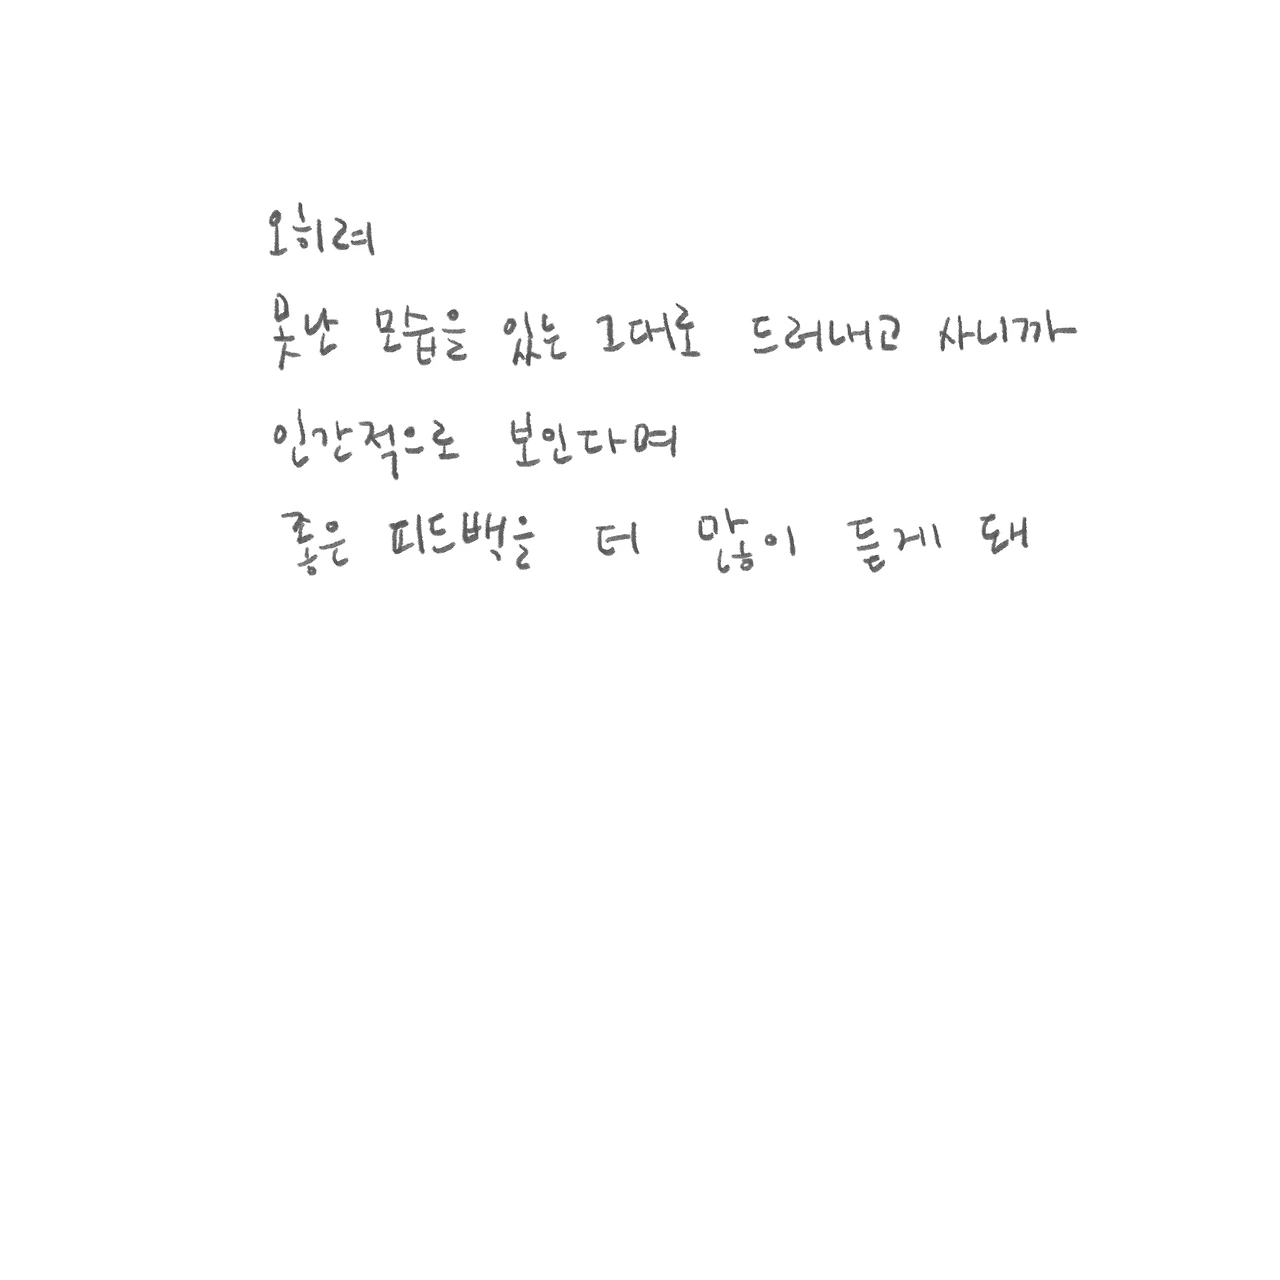 오히려
못난 모습을 있는 그대로 드러내고 사니까
인간적으로 보인다며
좋은 피드백을 더 많이 듣게 돼